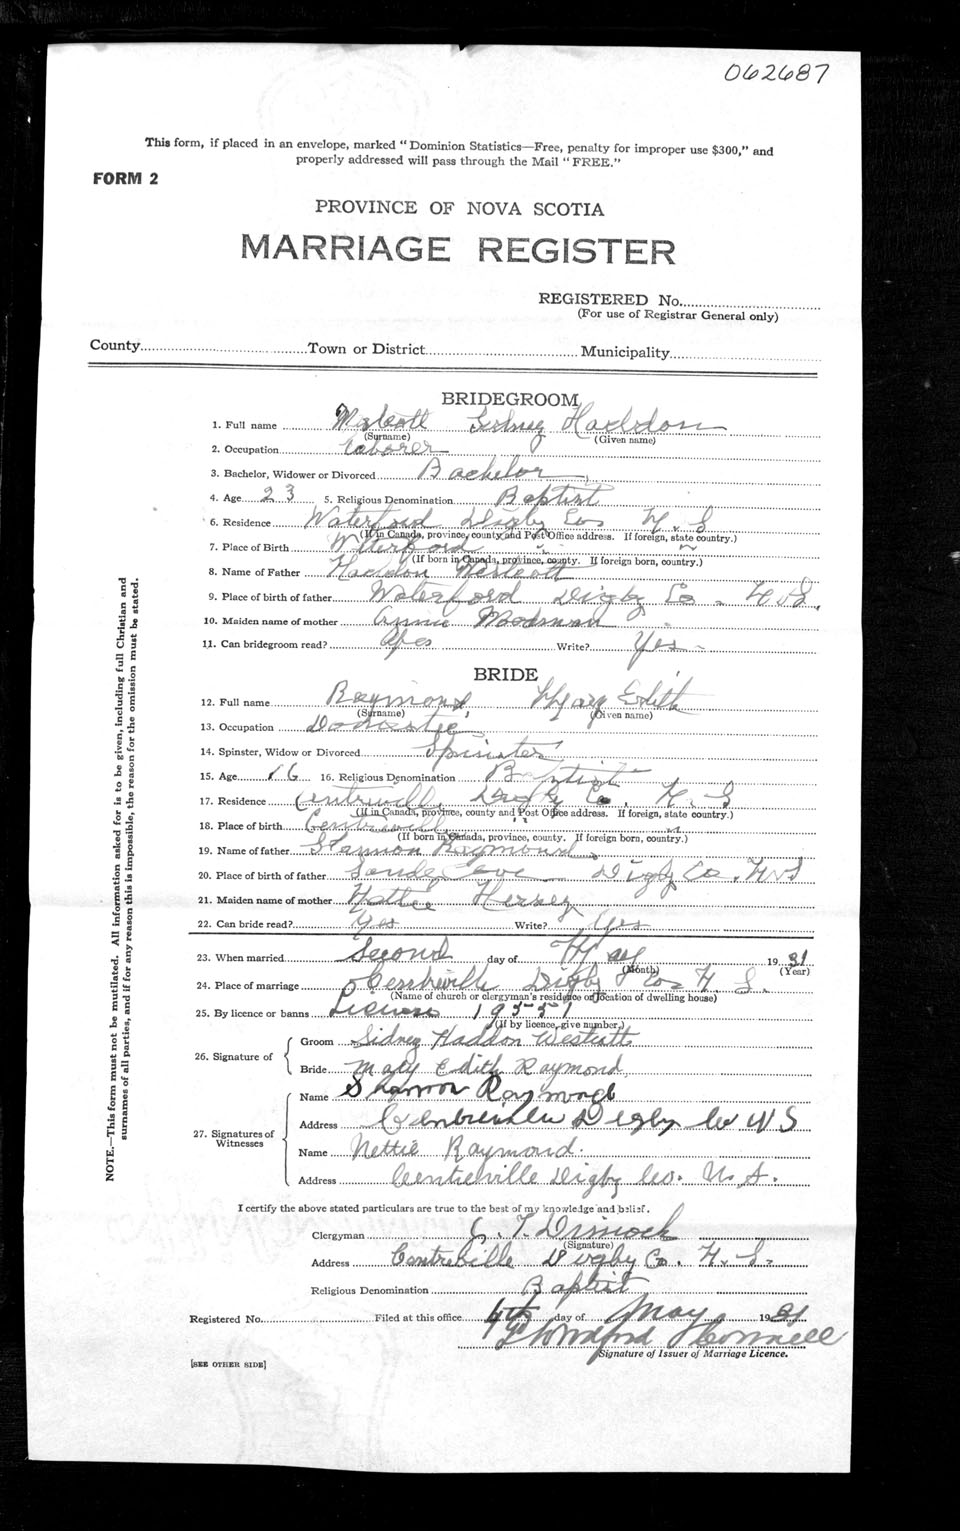 062687
This form, if placed in an envelope, marked "Dominion Statistics—Free, penalty for improper use $300," and
properly addressed will pass through the Mail "FREE."
FORM 2
PROVINCE OF NOVA SCOTIA
MARRIAGE REGISTER
REGISTERED No.
(For use of Registrar General only)
County Town or District Municipality
BRIDEGROOM
1. Full name Westcott Sidney Haddon
(Surname) (Given name)
2. Occupation Laborer
3. Bachelor, Widower or Divorced Bachelor
4. Age 23 5. Religious Denomination Baptist
6. Residence Waterford Digby Co N.S
(If in Canada, province, county and Post Office address. If foreign, state country.)
7. Place of Birth Waterford " "
(If born in Canada, province, county. If foreign born, country.)
8. Name of Father Haddon Westcott
9. Place of birth of father Waterford Digby Co. N.S.
10. Maiden name of mother Annie
11. Can bridegroom read? Yes Write? Yes
BRIDE
12. Full name Raymond, Mary Edith
(Surname) (Given name)
13. Occupation Domestic
14. Spinster, Widow or Divorced Spinster
15. Age 16 16. Religious Denomination Baptist
17. Residence Centreville Digby Co. N.S
(If in Canada, province, county and Post Office address. If foreign, state country.)
18. Place of birth Centreville " "
(If born in Canada, province, county. If foreign born, country.)
19. Name of father Shannon Raymond
20. Place of birth of father Sandy Cove Digby Co. N.S
21. Maiden name of mother Hersey
22. Can bride read? Yes Write? Yes
23. When married Second day of May 1931
(Month) (Year)
24. Place of marriage Centreville Digby Co N.S.
(Name of church or clergyman's residence or location of dwelling house)
25. By licence or banns License 19551
(If by licence, give number.)
26. Signature of
Groom Sidney Haddon Westcott
Bride Mary Edith Raymond
27. Signatures of Witnesses
Name Shannon Raymond
Address Centreville Digby Co N S
Name Nettie Raymond.
Address Centreville Digby Co. N.S.
I certify the above stated particulars are true to the best of my knowledge and belief.
Clergyman Dimock
(Signature)
Address Centreville Digby Co. N.S.
Religious Denomination Baptist
Registered No. Filed at this office 4th day of May 1931
Signature of Issuer of Marriage Licence.
[SEE OTHER SIDE]
NOTE.—This form must not be mutilated. All information asked for is to be given, including full Christian and
surnames of all parties, and if for any reason this is impossible, the reason for the omission must be stated.